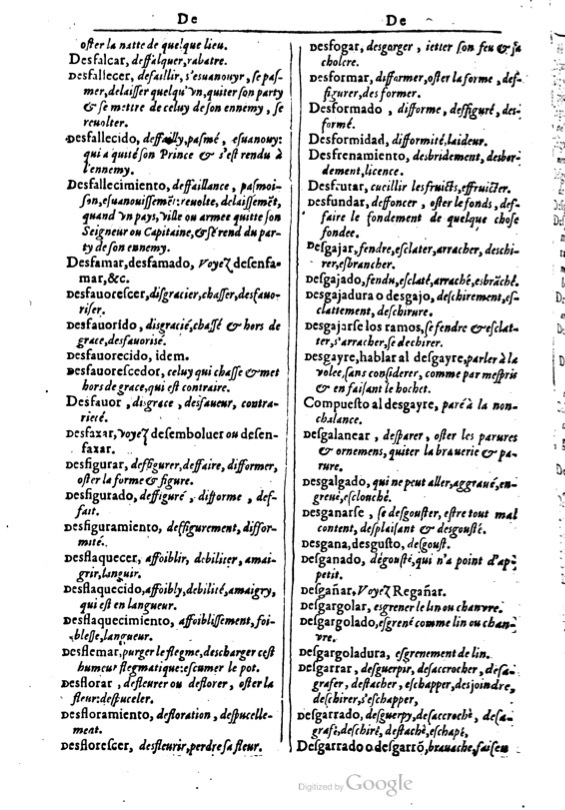 De
oster la natte de quelque lieu.
Desfalcar, deffalquer, rabatre.
Desfallecer, defaillir, s'esuanouyr, se pas-
mer, delaisser quelqu'vn, quiter son party
& se mettre de celuy de son ennemy, se
reuolter.
Desfallecido, deffailly, pasmé, esuanouy:
qui a quité son Prince & s'est rendu à
l'ennemy.
Desfallecimiento, deffaillance, pasmoi-
son, esuanouissemēt: reuolte, delaissemēt,
quand vn pays, ville ou armee quitte son
Seigneur ou Capitaine, & se rend du par-
ty de son ennemy.
Desfamar, desfamado, Voyez desenfa-
mar, &c.
Desfauorescer, disgracier, chasser, desfauo-
riser.
Desfauorido, disgracié, chassé & hors de
grace, desfauorisé.
Desfauorecido, idem.
Desfauorescedor, celuy qui chasse & met
hors de grace, qui est contraire.
Desfauor, disgrace, desfaueur, contra-
rieté.
Desfaxar, voyez desemboluer ou desen-
faxar.
Desfigurar, deffigurer, deffaire, difformer,
oster la forme & figure.
Desfigurado, deffiguré, difforme, def-
fait.
Desfiguramiento, deffigurement, diffor-
mité.
Desflaquecer, affoiblir, debiliter, amai-
grir, languir.
Desflaquecido, affoibly, debilité, amaigry,
qui est en langueur.
Desflaquecimiento, affoiblissement, foi-
blesse, langueur.
Desflemar, purger le flegme, descharger cest
humeur flegmatique: escumer le pot.
Desflorar, desfleurer ou deflorer, oster la
fleur: despuceler.
Desfloramiento, defloration, despucelle-
ment.
Desflorescer, desfleurir, perdre sa fleur.
De
Desfogar, desgorger, ietter son feu & sa
cholere.
Desformar, difformer, oster la forme, def-
figurer, desformer.
Desformado, difforme, deffiguré, des-
formé.
Desformidad, difformité, laideur.
Desfrenamiento, desbridement, desbor-
dement, licence.
Desfrutar, cueillir les fruicts, effruicter.
Desfundar, deffoncer, oster le fonds, def-
faire le fondement de quelque chose
fondee.
Desgajar, fendre, esclater, arracher, deschi-
rer, esbrancher.
Desgajado, fendu, esclaté, arraché, esbrāché.
Desgajadura o desgajo, deschirement, es-
clattement, deschirure.
Desgajarse los ramos, se fendre & esclat-
ter, s'arracher, se dechirer.
Desgayre, hablar al desgayre, parler à la
volee, sans considerer, comme par mespris
& en faisant le hochet.
Compuesto al desgayre, paré à la non-
chalance.
Desgalanear, desparer, oster les parures
& ornemens, quiter la brauerie & pa-
rure.
Desgalgado, qui ne peut aller, aggraué, en-
greué, esclouché.
Desganarse, se desgouster, estre tout mal
content, desplaisant & desgousté.
Desgana, desgusto, desgoust.
Desganado, dégousté, qui n'a point d'ap-
petit.
Desgañar, Voyez Regañar.
Desgargolar, esgrener le lin ou chanvre.
Desgargolado, esgrené comme lin ou chan-
vre.
Desgargoladura, esgrenement de lin.
Desgarrar, desguerpir, desaccrocher, desa-
grafer, destacher, eschapper, desjoindre,
deschirer, s'eschapper,
Desgarrado, desguerpy, desaccroché, desa-
grafé, deschiré, destaché, eschapé,
Desgarrado o desgarrō, brauache, faisen
Digitized by Google